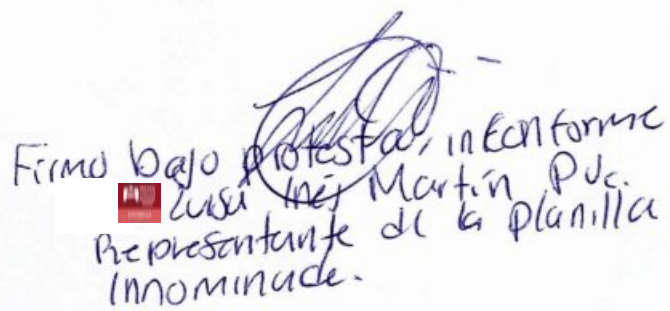 Firmo bajo protesta, inconforme
Luisa Inés Martín Puc.
Representante de la planilla
Innominada.